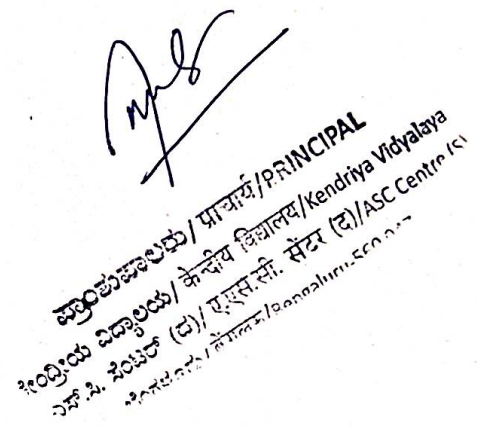 ಪ್ರಾಂಶುಪಾಲರು/ प्राचार्य/PRINCIPAL
ಕೇಂದ್ರೀಯ ವಿದ್ಯಾಲಯ/ केन्द्रीय विद्यालय/Kendriya Vidyalaya
ಎಸ್.ಸಿ. ಸೆಂಟರ್ (ದ)/ ए.एस.सी. सेंटर (द)/ASC Centre (S)
ಬೆಂಗಳೂರು/ बेंगलूरु/Bengaluru-560